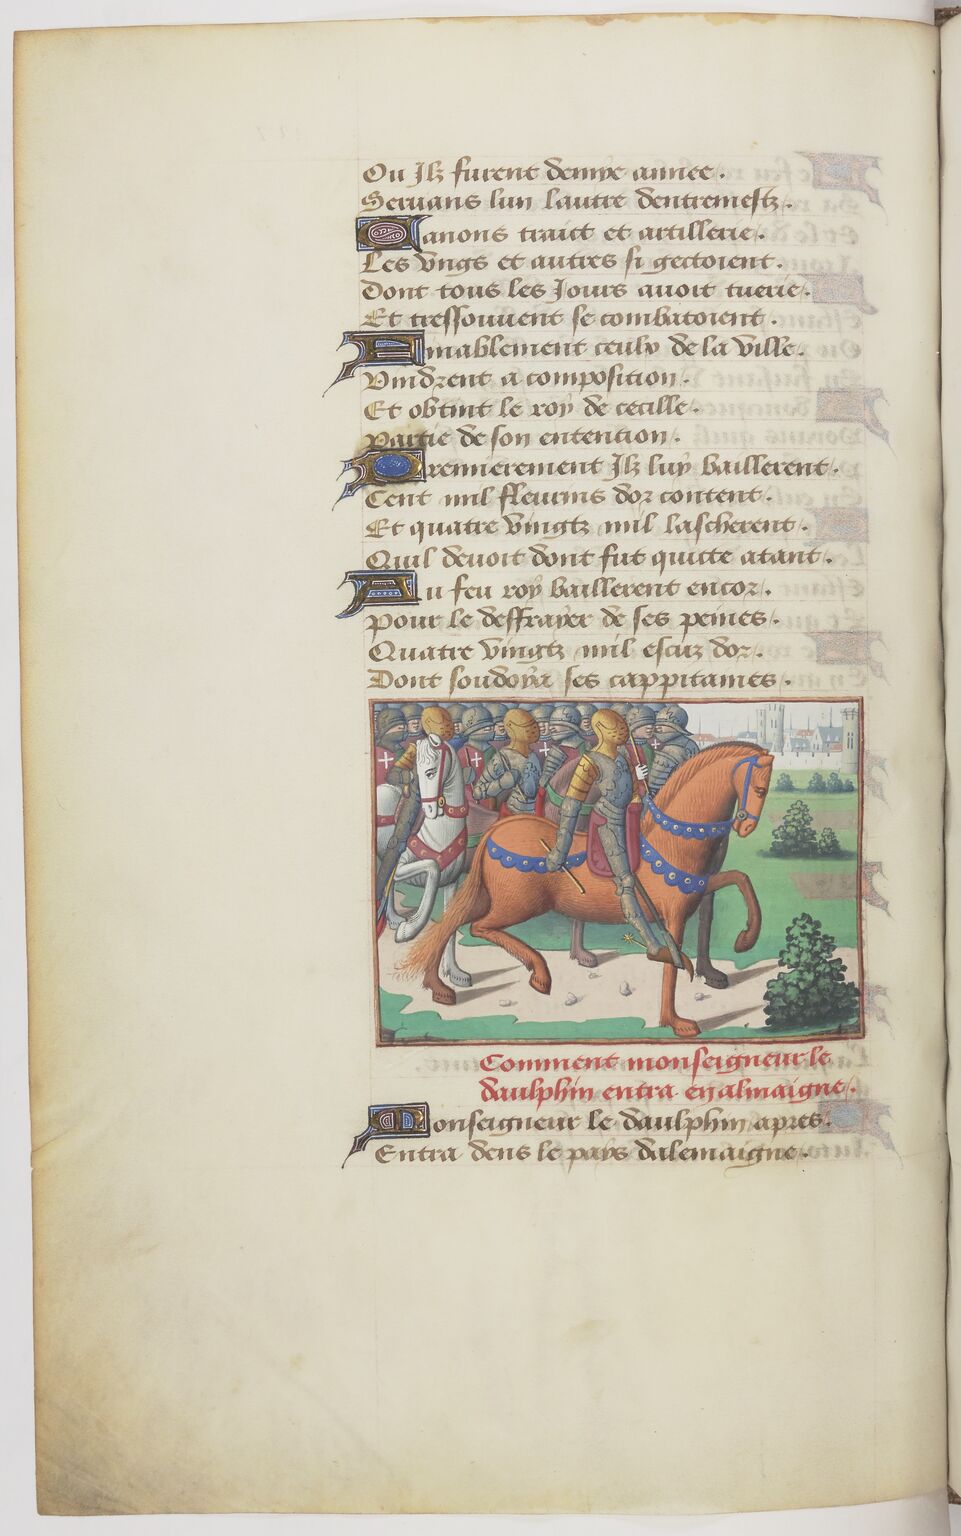 Ou Ilz furent demye annee.
Seruans lun lautre dentremestz.
Canons traict et artillerie.
Les vngs et autres si gectoient.
Dont tous les Jours auoit tuerie.
Et tressouuent se combatoient.
Amablement ceulx de la ville.
Vindrent a composition.
Et obtint le roy de cecille.
Partie de son entention.
Premierement Ilz luy baillerent.
Cent mil fleurins dor content.
Et quatre vingtz mil lascherent.
Quil deuoit dont fut quicte atant.
Au feu roy baillerent encor.
Pour le deffrayer de ses peines.
Quatre vingtz mil escuz dor.
Dont soudoya ses cappitaines.
Comment monseigneur le
daulphin entra en almaigne.
Monseigneur le daulphin apres.
Entra dens le pays dalemaigne.